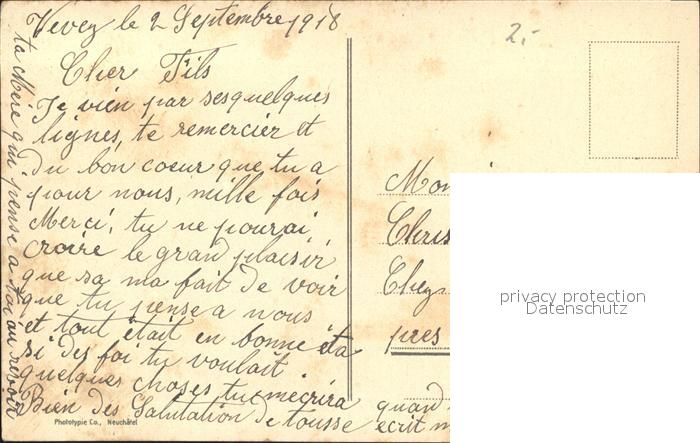 Vevey le 2 Septembre 1918
Cher Fils
Je vien par sesquelques
lignes, te remercier et
du bon coeur que tu a
pour nous, mille fois
Merci, tu ne pourai
croire le grand plaisir
que sa ma fait de voir
que tu pense a nous
et tout était en bonne éta
si des foi tu voulait
quelques choses tu mecrira
Bien des Salutation de tousse
ta Mère qui pense a toi au revoir
Phototypie Co., Neuchâtel
2.-
Chez
pres
quand
ecrit
privacy protection
Datenschutz